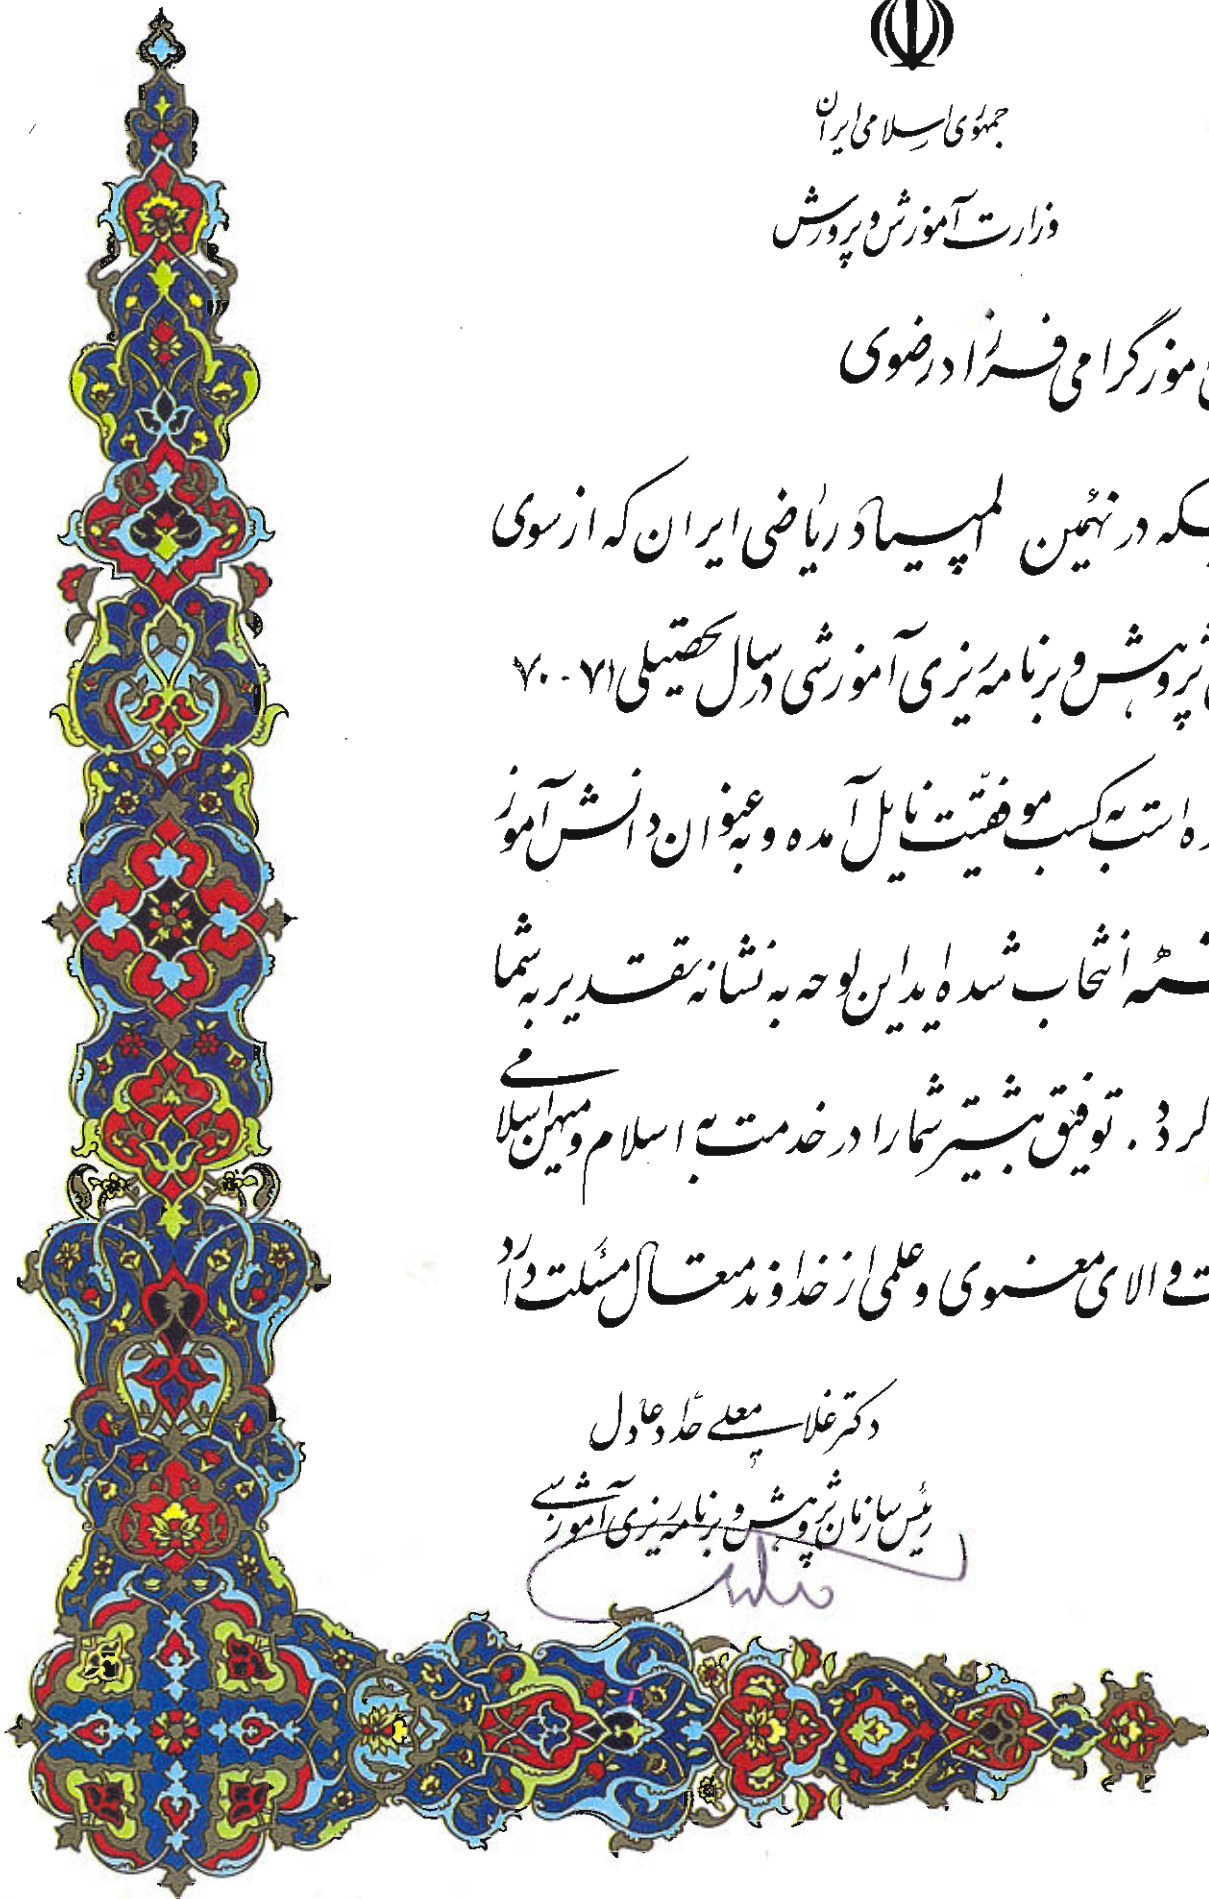 جمهوری اسلامی ایران
وزارت آموزش و پرورش
موز گرامی فرزاد رضوی
که در نهمین المپیاد ریاضی ایران که از سوی
پژوهش و برنامه ریزی آموزشی در سال تحصیلی ۷۱-۷۰
ه است به کسب موفقیت نایل آمده و به عنوان دانش آموز
انتخاب شده اید این لوحه به نشانه تقدیر به شما
توفیق بیشتر شما را در خدمت به اسلام و میهن اسلامی
والای معنوی و علمی از خداوند متعال مسئلت دارد
دکتر غلامعلی حداد عادل
رئیس سازمان پژوهش و برنامه ریزی آموزشی